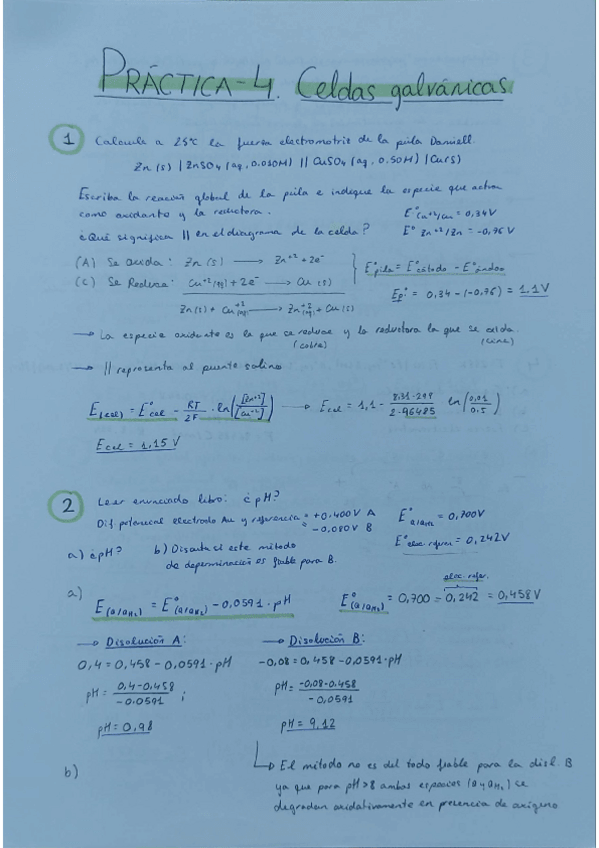 PRÁCTICA-4. Celdas galvánicas
1 Calcula a 25ºC la fuerza electromotriz de la pila Daniell.
Zn(s) | ZnSO4 (aq, 0.010M) || CuSO4 (aq, 0.50M) | Cu(s)
Escriba la reacción global de la pila e indique la especie que actúa
como oxidante y la reductora. E° Cu+2/Cu = 0,34V
¿Qué significa || en el diagrama de la celda? E° Zn+2/Zn = -0,76 V
(A) Se oxida: Zn(s) → Zn+2 + 2e- E°pila = E°cátodo - E°ánodo
(C) Se Reduce: Cu+2(aq) + 2e- → Cu (s) E°p = 0,34 - (-0,76) = 1,1V
Zn(s) + Cu+2(aq) → Zn+2(aq) + Cu(s)
→ La especie oxidante es la que se reduce y la reductora la que se oxida.
(cobre) (cinc)
→ || representa al puente salino
E(cel) = E°cel - RT/2F · ln([Zn+2]/[Cu+2]) → Ecel = 1,1 - 8.31·298/2·96485 ln(0,01/0.5)
Ecel = 1,15 V
2 Leer enunciado libro: ¿pH?
Dif. potencial electrodo Au y referencia: +0,400V A E° Q/QH2 = 0,700V
-0,080V B E° elec. referen = 0,242V
a) ¿pH? b) Discuta si este método
de determinación es fiable para B.
a) elec. refer.
E(Q/QH2) = E°(Q/QH2) - 0,0591 · pH E°(Q/QH2) = 0,700 - 0,242 = 0,458V
→ Disolución A: → Disolución B:
0,4 = 0,458 - 0,0591 · pH -0,08 = 0,458 - 0,0591 · pH
pH = 0,4-0,458/-0,0591 ; pH = -0,08-0.458/-0,0591
pH = 0,98 pH = 9,12
b) → El método no es del todo fiable para la disl. B
ya que para pH > 8 ambas especies (Q y QH2) se
degradan oxidativamente en presencia de oxígeno